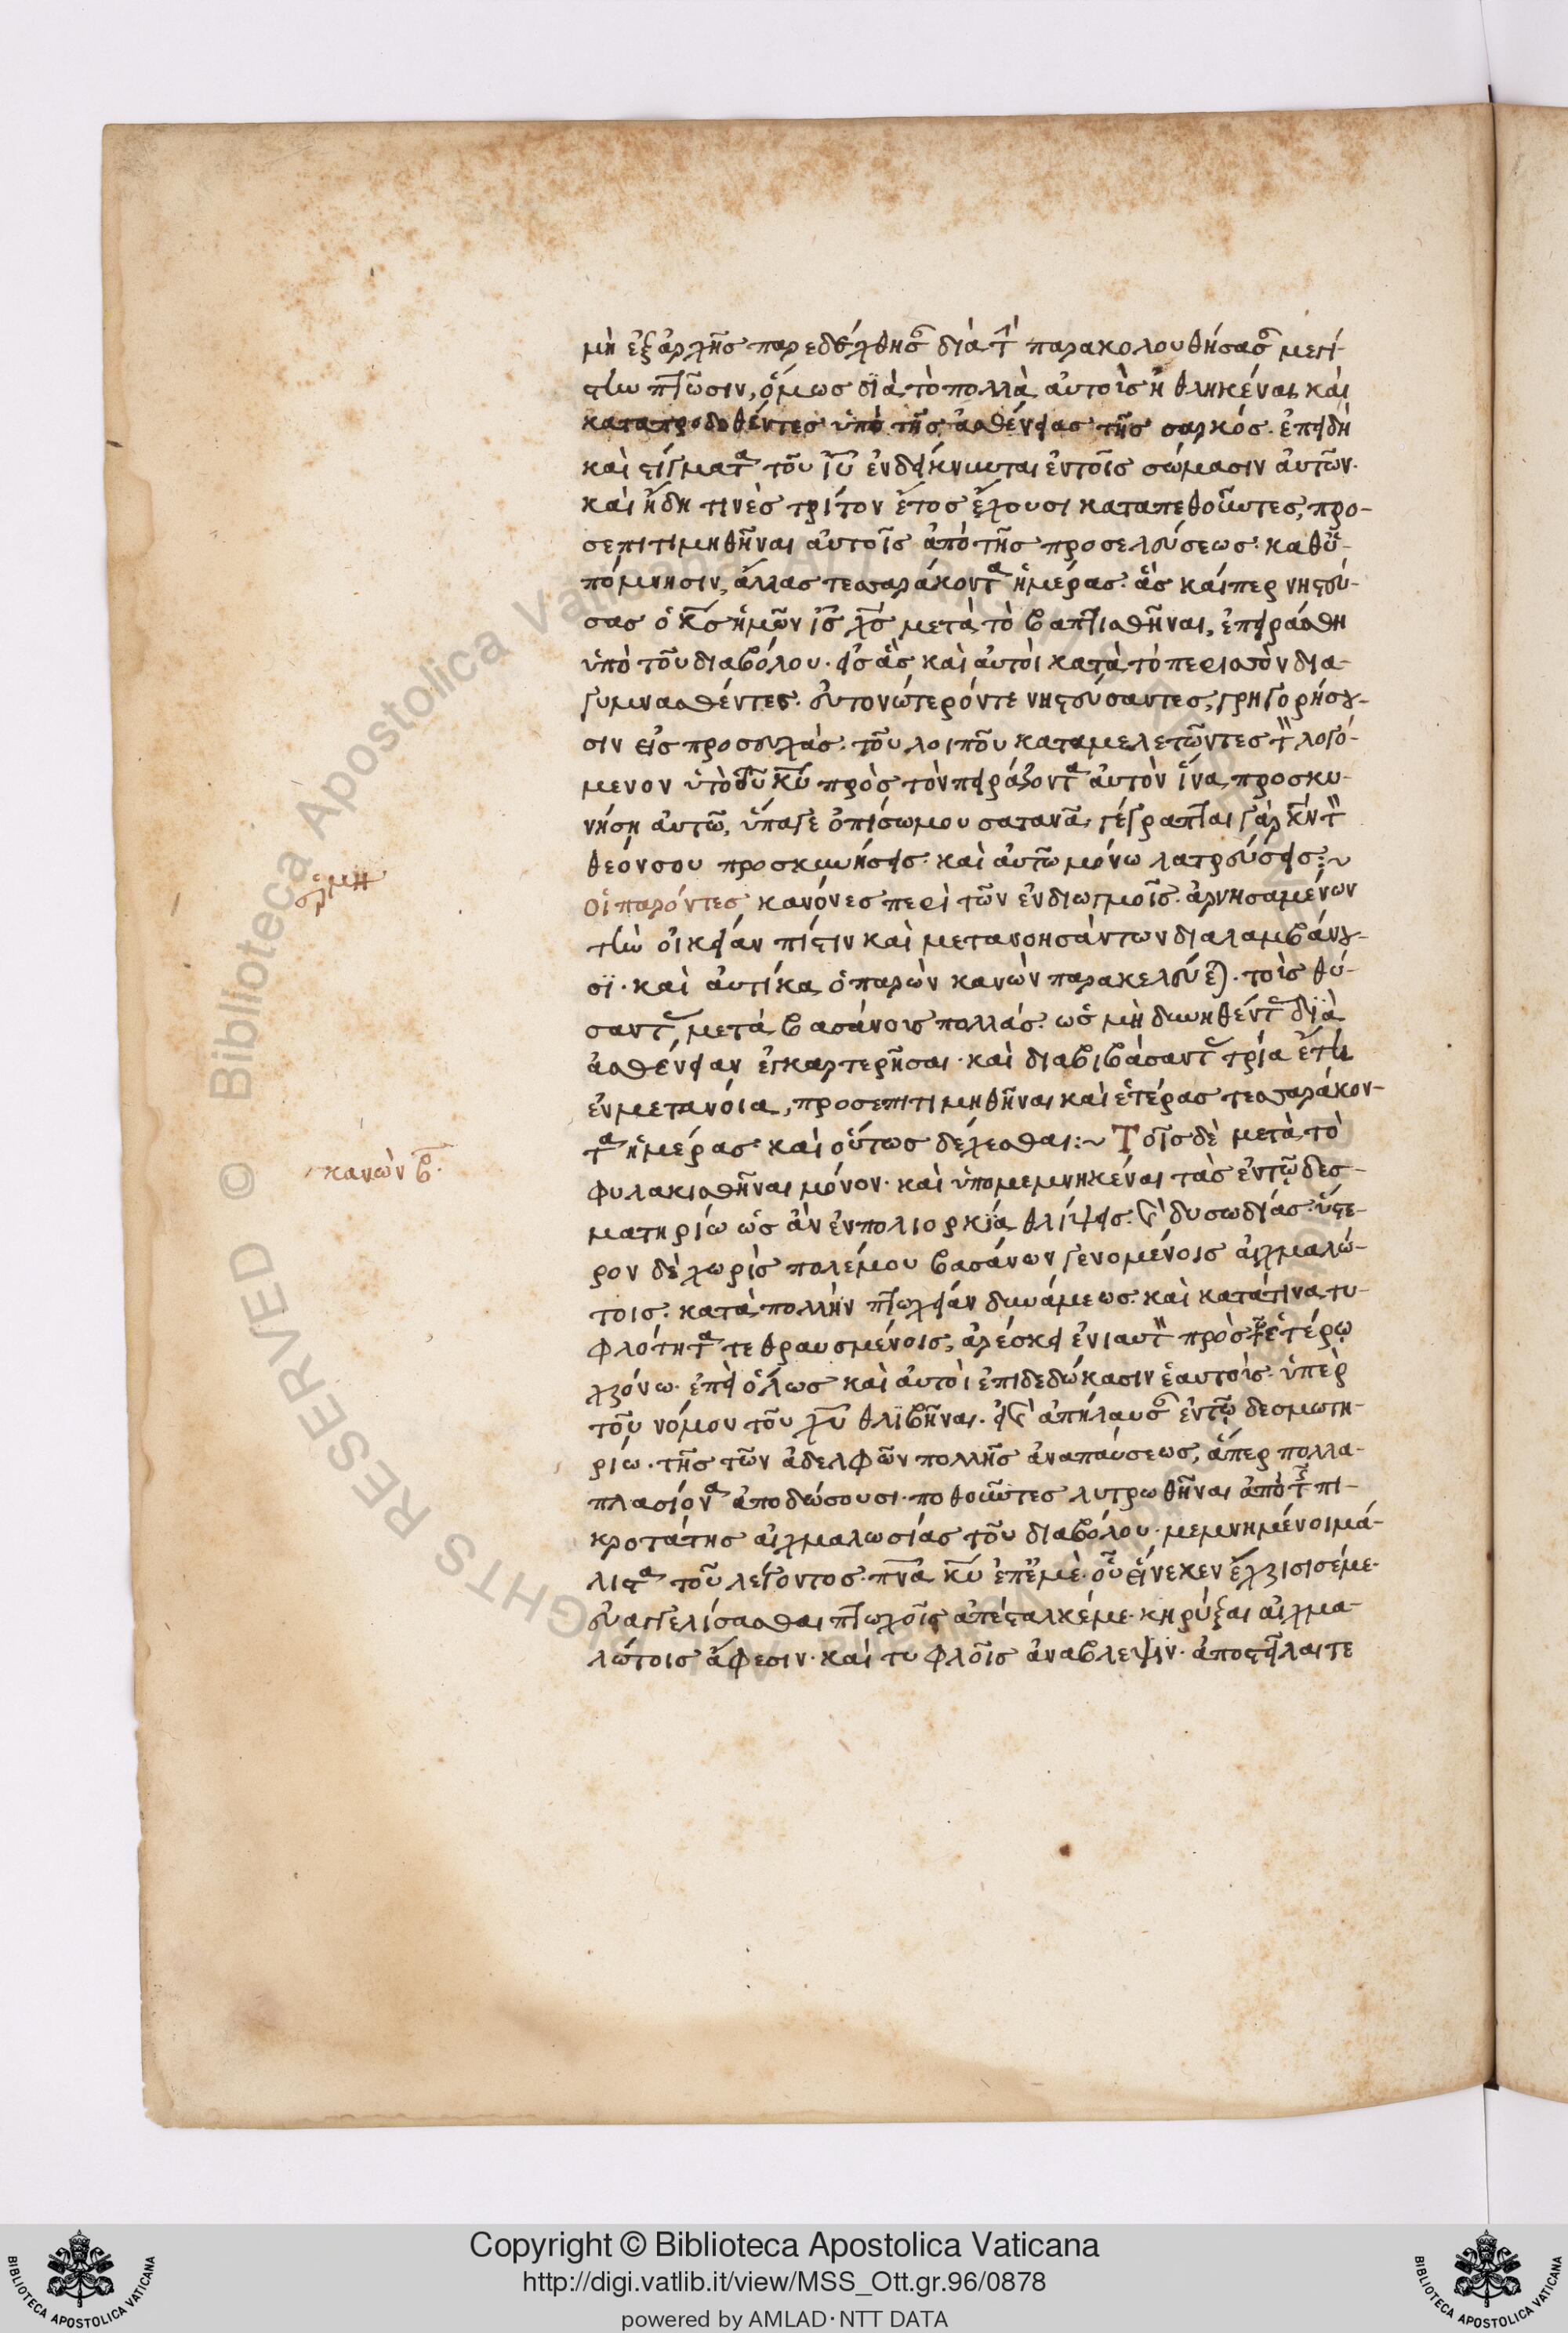 μὴ ἐξαρχῆσ παρεδέχθησ̅ διὰ τ̅ παρακολουθήσασ̅ μεγί-
στην πτῶσιν, ὅμωσ διὰ τὸ πολλὰ αὐτοὺσ ἠθληκέναι καὶ
καταπροδοθέντεσ ὑπὸ τῆσ ἀσθένειασ τῆσ σαρκόσ. ἐπειδὴ
καὶ στίγματα τοῦ ιυ̅ ἐνδείκνυνται ἐντοῖσ σώμασιν αὐτῶν.
καὶ ἤδη τινὲσ τρίτον ἔτοσ ἔχουσι καταπεθοῦντες, προ-
σεπιτιμηθῆναι αὐτοῖσ ἀπὸ τῆσ προσελεύσεωσ. καθὑ-
πόμνησιν, ἄλλασ τεσσαράκοντα ἡμέρασ. ἃσ καίπερ νηστεύ-
σασ ὁ κ̅σ̅ ἡμῶν ι̅σ̅ χ̅σ̅ μετὰ τὸ βαπτισθῆναι, ἐπειράσθη
ὑπὸ τοῦ διαβόλου. εἰσ ἃσ καὶ αὐτοὶ κατὰ τὸ περισσὸν δια-
γυμνασθέντεσ. εὐτονώτερόν τε νηστεύσαντεσ, γρηγορήσου-
σιν εἰσ προσευχάσ. τοῦ λοιποῦ καταμελετῶντεσ τ̅ λεγό-
μενον ὑπὸ τοῦ κ̅υ̅ πρὸσ τὸν πειράζοντα αὐτὸν ἵνα προσκυ-
νήση αὐτῶ, ὕπαγε ὀπίσωμου σατανᾶ, γέγραπται γάρ κ̅ν̅ τ̅
θεόνσου προσκυνήσεισ. καὶ αὐτῶ μόνω λατρεύσεισ:~
οἱ παρόντεσ κανόνεσ περὶ τῶν ἐνδιωγμοῖσ. ἀρνησαμένων
τὴν οἰκείαν πίστιν καὶ μετανοησάντων διαλαμβάνου-
σϊ. καὶ αὐτίκα ὁ παρὼν κανὼν παρακελεύεται. τοὺσ θύ-
σαντ̅ μετὰ βασάνουσ πολλάσ. ὡσ μὴ δυνηθέντ̅ διὰ
ἀσθένειαν ἐγκαρτερῆσαι. καὶ διαβιβάσαντ̅ τρία ἔτη
ἐνμετανοία, προσεπιτιμηθῆναι καὶ ἑτέρασ τεσσαράκον-
τα ἡμέρασ. καὶ οὕτωσ δέχεσθαι:~ Τοῖσ δὲ μετὰ τὸ
φυλακισθῆναι μόνον. καὶ ὑπομεμνηκέναι τὰσ ἐντῷ δεσ-
ματηρίω ὡσ ἂν ἐνπολιορκία θλίψεισ. κ̀ δυσωδίασ. ὕστε-
ρον δὲ χωρὶσ πολέμου βασάνων γενομένοισ αἰχμαλώ-
τοισ. κατὰ πολλὴν πτωχείαν δυνάμεωσ. καὶ κατά τινα τυ-
φλότητα τεθραυσμένοισ, ἀρέσκει ἐνιαυτ̅ πρὸσ ἑτέρω
χρόνω. ἐπεὶ ὅλωσ καὶ αὐτοὶ ἐπιδεδώκασιν ἑαυτοὺσ. ὑπὲρ
τοῦ νόμου τοῦ χ̅υ̅ θλιβῆναι. εἰ κ̀ ἀπήλαυσ̅ ἐντῷ δεσμωτη-
ρίω. τῆσ τῶν ἀδελφῶν πολλῆσ ἀναπαύσεωσ, ἅπερ πολλα-
πλασίονα ἀποδώσουσι. ποθοῦντεσ λυτρωθῆναι ἀπὸ τ̅ πι-
κροτάτησ αἰχμαλωσίασ τοῦ διαβόλου. μεμνημένοι μά-
λιστα τοῦ λέγοντοσ. π̅ν̅α̅ κ̅υ̅ ἐπἐμὲ. οὗ εἵνεκεν ἔχρισισέμε.
εὐαγγελίσασθαι πτωχοῖσ ἀπέσταλκέμε. κηρύξαι αἰχμα-
λώτοισ ἄφεσιν. καὶ τυφλοῖσ ἀναβλεψιν. ἀποστεῖλαι τε
κανὼν β.
Copyright © Biblioteca Apostolica Vaticana
http://digi.vatlib.it/view/MSS_Ott.gr.96/0878
powered by AMLAD·NTT DATA
BIBLIOTECA APOSTOLICA VATICANA
BIBLIOTECA APOSTOLICA VATICANA
© Biblioteca Apostolica Vaticana ALL RIGHTS RESERVED